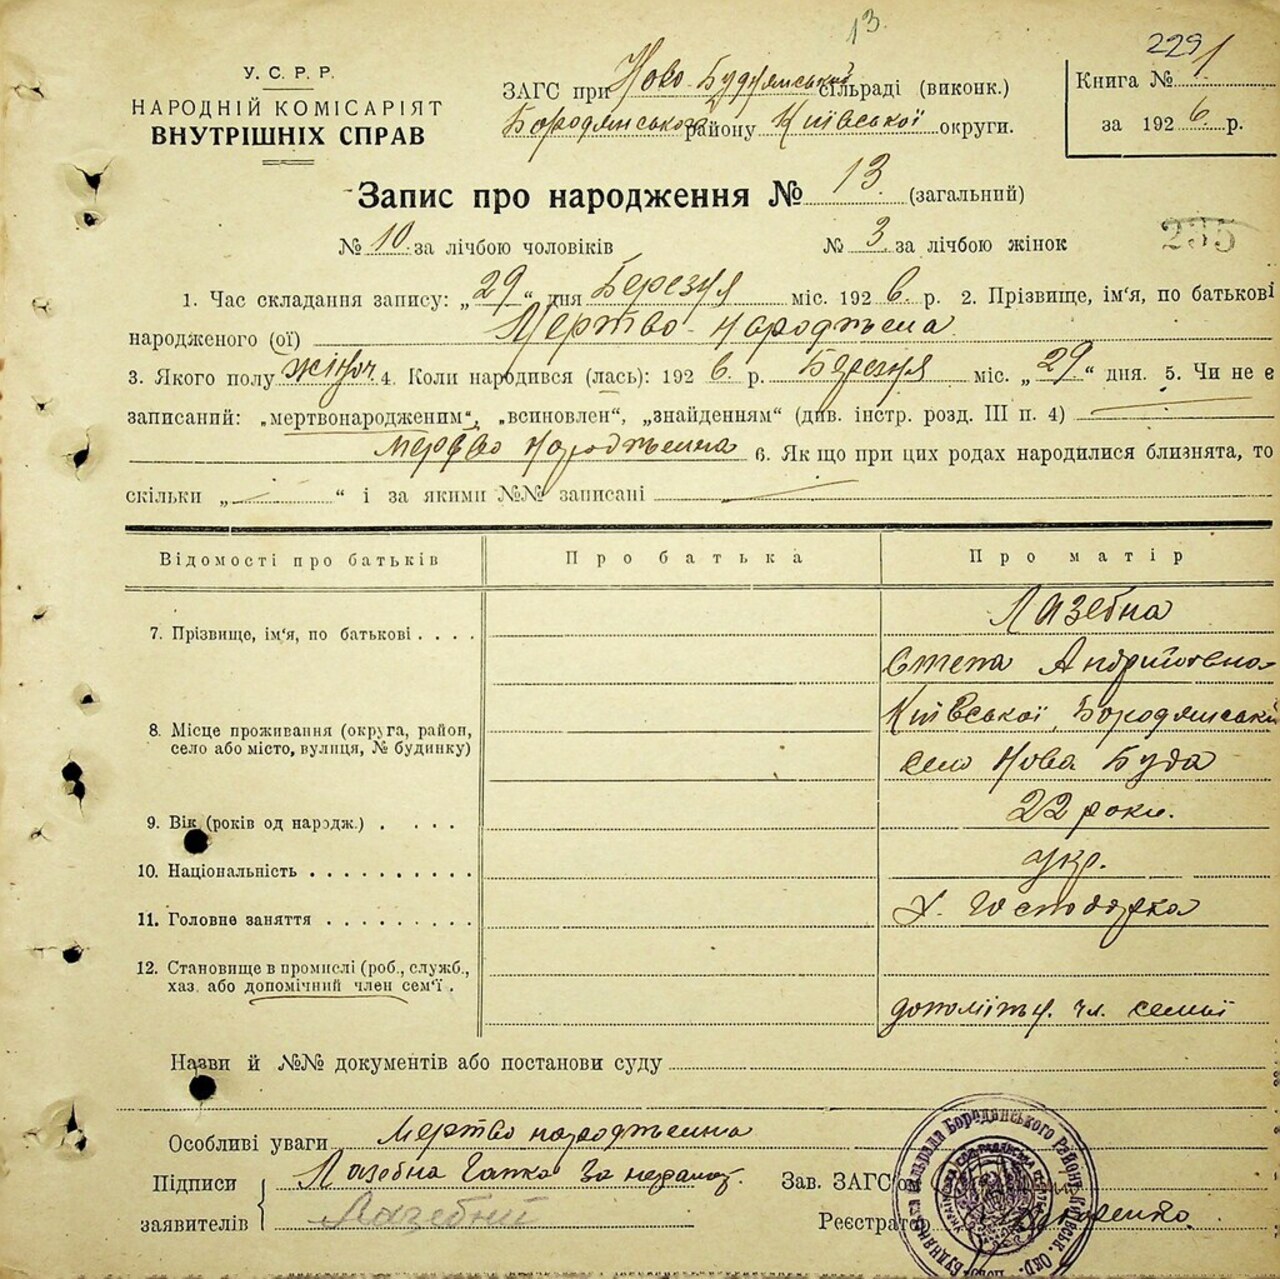 13.
2291
У. С. Р. Р.
НАРОДНІЙ КОМІСАРІЯТ
ВНУТРІШНІХ СПРАВ
ЗАГС при Ново-Будянський сільраді (виконк.)
Бородянського району Київської округи.
Книга №
за 1926 р.
Запис про народження № 13. (загальний)
№ 10. за лічбою чоловіків № 3 за лічбою жінок
235
1. Час складання запису: „29“ дня Березня міс. 1926. р. 2. Прізвище, ім‘я, по батькові
народженого (ої) Мертво-народжена
3. Якого полу жіноч. 4. Коли народився (лась): 1926. р. Березня міс. „29.“ дня. 5. Чи не є
записаний: „мертвонародженим“, „всиновлен“, „знайденням“ (див. інстр. розд. III п. 4)
мертво народженна 6. Як що при цих родах народилися близнята, то
скільки „ “ і за якими №№ записані
Відомості про батьків Про батька Про матір
7. Прізвище, ім‘я, по батькові . . . . Лазебна
Андріївна
8. Місце проживання (округа, район, Київської, Бородянський
село або місто, вулиця, № будинку) село Нова Буда
9. Вік (років од народж.) . . . . 22 роки.
10. Національність . . . . . . . . . . укр.
11. Головне заняття . . . . . . . . . Х. Господарка
12. Становище в промислі (роб., служб.,
хаз. або допомічний член сем‘ї . допоміжн. чл. семьї
Назви й №№ документів або постанови суду
Особливі уваги Мертво народженна
Підписи Лазебна Гапка За неграмот.
заявителів Лазебний
Зав. ЗАГС‘ом
Реєстратор